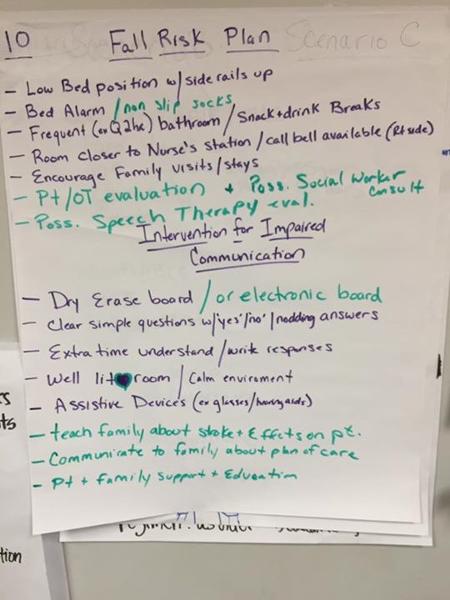 10 Fall Risk Plan Scenario C
- Low Bed position w/side rails up
- Bed Alarm / non slip socks
- Frequent (ex Q2hr) bathroom / Snack + drink Breaks
- Room closer to Nurse's station / call bell available (Rt side)
- Encourage Family visits/stays
- Pt/OT evaluation + Poss. Social Worker consult
- Poss. Speech Therapy eval.
Intervention for Impaired
Communication
- Dry Erase board / or electronic board
- Clear simple questions w/'yes'/'no'/nodding answers
- Extra time understand/write responses
- Well lit room / Calm enviroment
- Assistive Devices (ex glasses/hearing aids)
- teach family about stroke + Effects on pt.
- Communicate to family about plan of care
- Pt + family support + Education